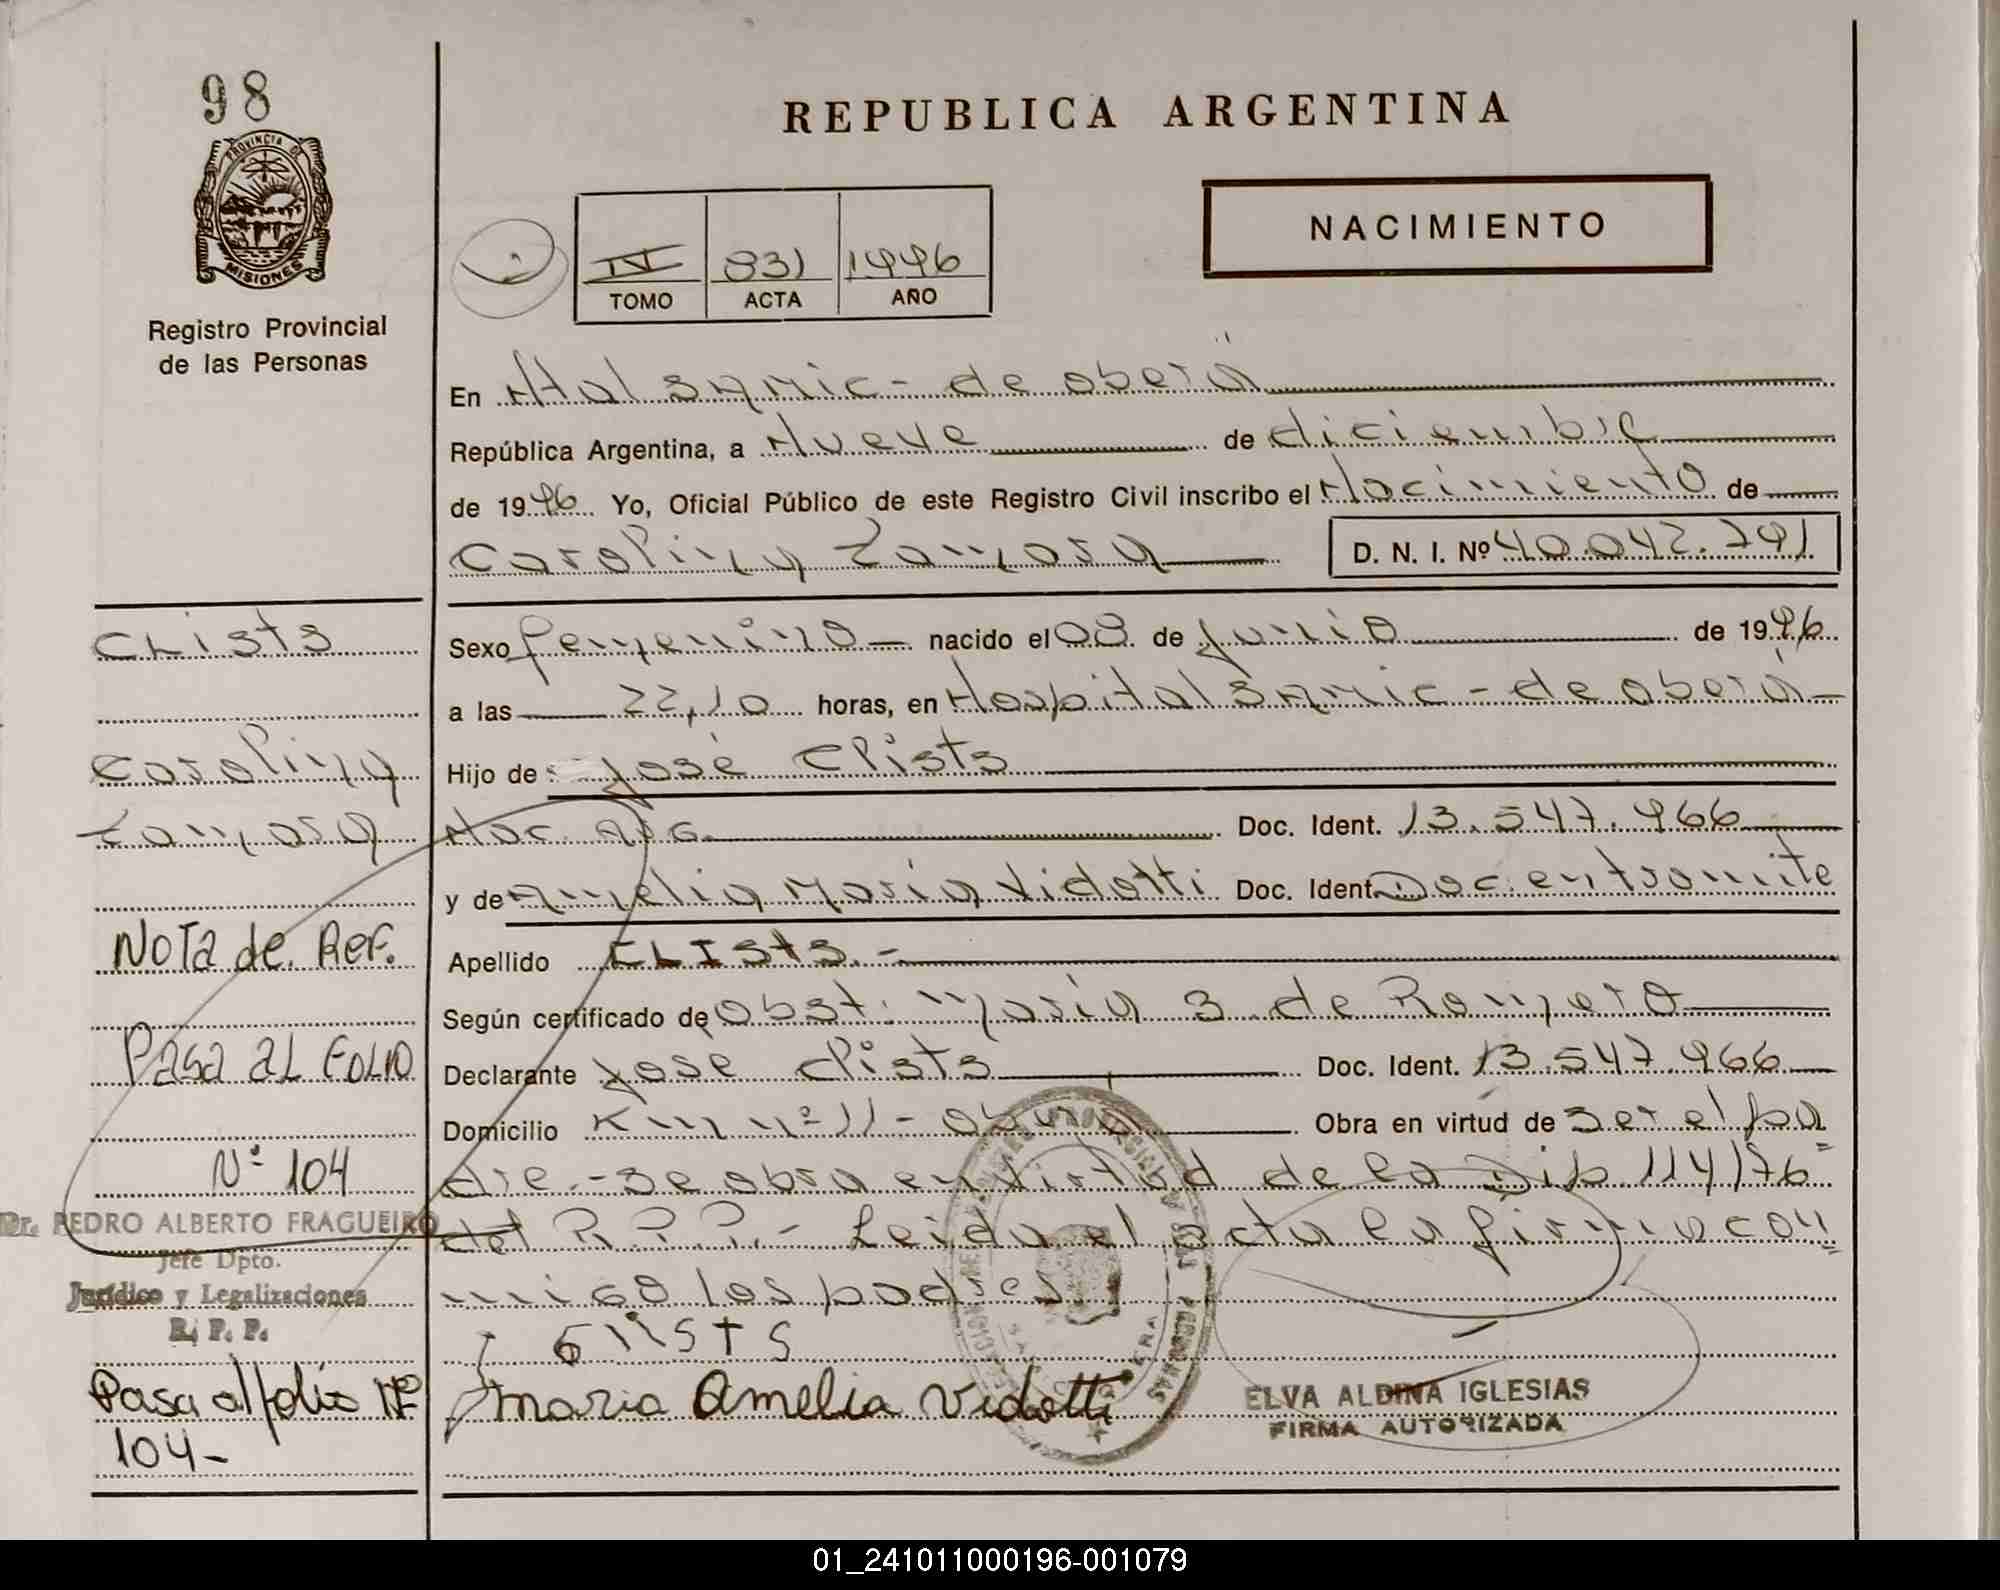 98
REPUBLICA ARGENTINA
PROVINCIA DE
MISIONES
Registro Provincial
de las Personas
NACIMIENTO
IV 831 1996
TOMO ACTA AÑO
En Htal SAMIC - de oberá
República Argentina, a Nueve de diciembre
de 1996 Yo, Oficial Público de este Registro Civil inscribo el Nacimiento de
Carolina Tamara D. N. I. Nº 40.042.791
CLists
Carolina
Tamara
Sexo femenino nacido el 08 de Junio de 1996
a las 22,10 horas, en Hospital SAMIC - de oberá
Hijo de José Clists
Nac. Arg. Doc. Ident. 13.547.966
y de Amelia María Vidotti Doc. Ident. Doc. en tramite
Apellido CLISTS.-
Según certificado de obst. María S de Romero
Declarante José Clists Doc. Ident. 13.547.966
Domicilio Km nº 11 - oberá Obra en virtud de ser el pa
dre.- se obra en virtud de la Disp. 114/76
del R.P.P.- Leida el acta la firma con
migo los padres
Clists
Maria Amelia Vidotti
ELVA ALDINA IGLESIAS
FIRMA AUTORIZADA
NOTA de REF.
PASA AL FOLIO
Nº 104
Dr. PEDRO ALBERTO FRAGUEIRO
Jefe Dpto.
Jurídico y Legalizaciones
R. P. P.
Pasa al folio Nº
104-
01_241011000196-001079